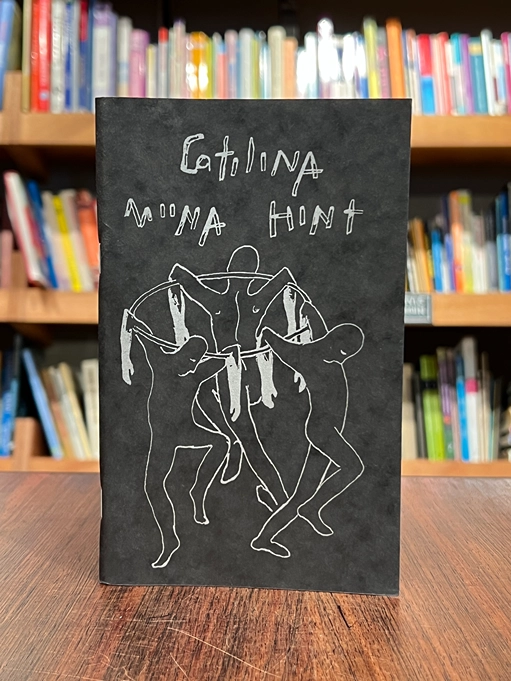 Catilina
Miina Hint